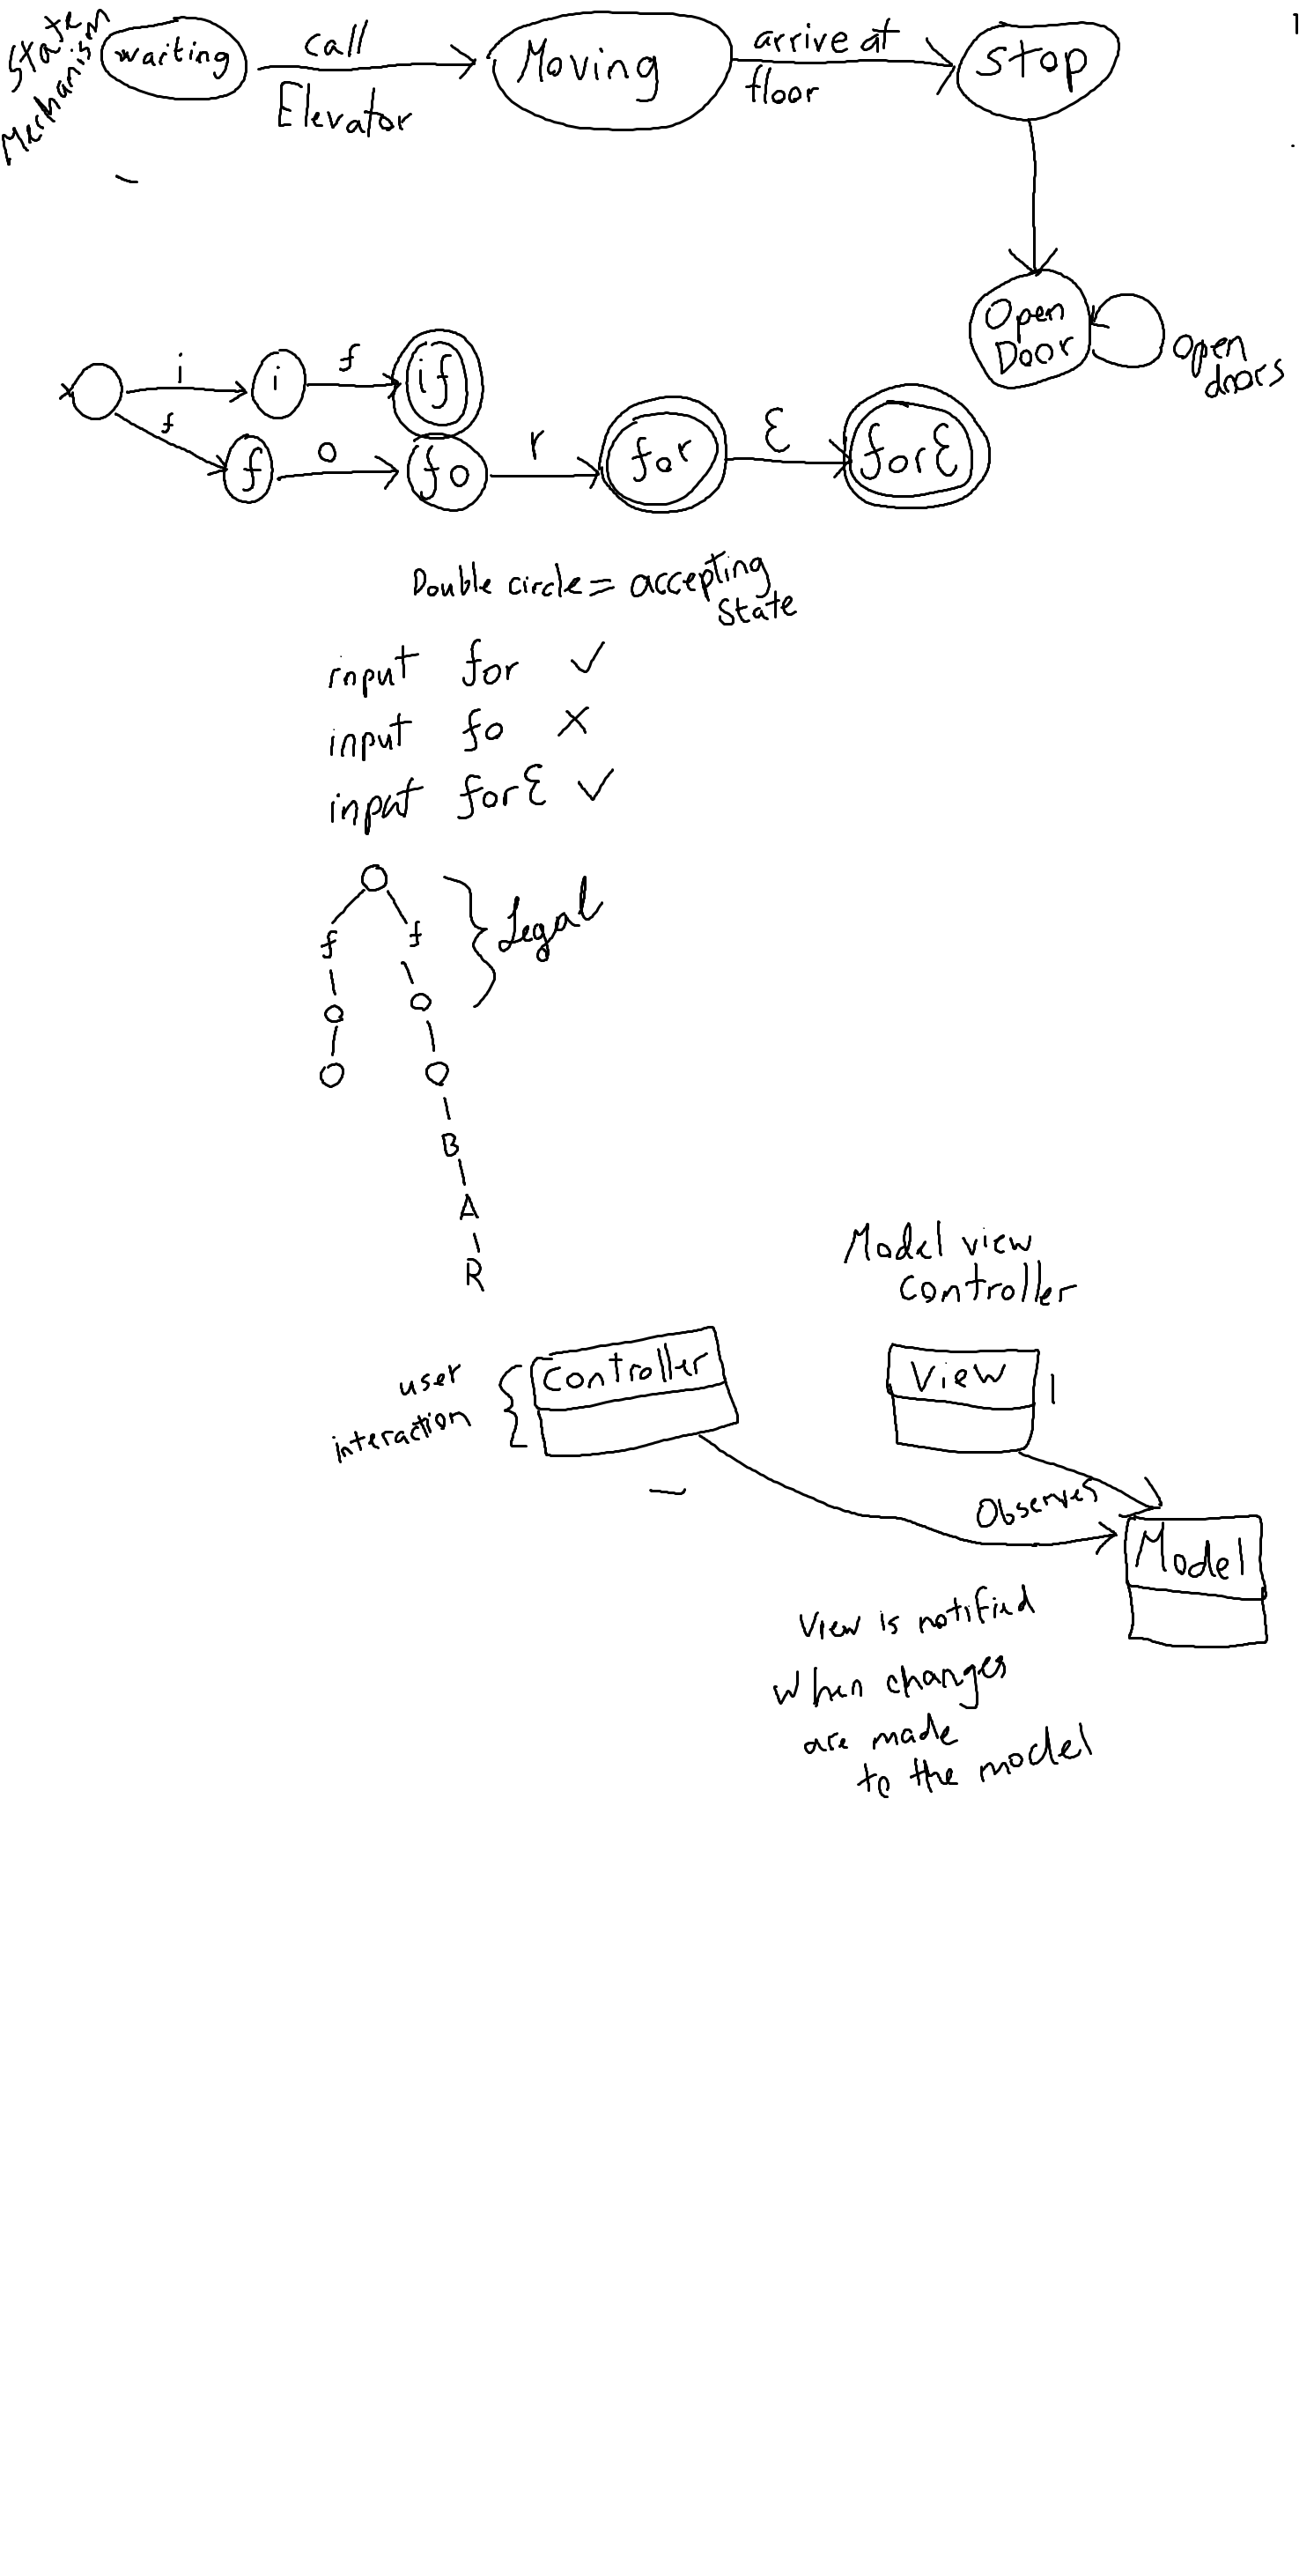 State
Mechanism
waiting
call
Elevator
Moving
arrive at
floor
Stop
Open
Door
open
doors
i
i
f
if
f
f
o
fo
r
for
Ɛ
forƐ
Double circle = accepting
State
input for ✓
input fo X
input forƐ ✓
O
f f
o o
O O
B
A
R
Legal
Model view
controller
user
interaction
Controller
View
Observes
Model
View is notified
when changes
are made
to the model